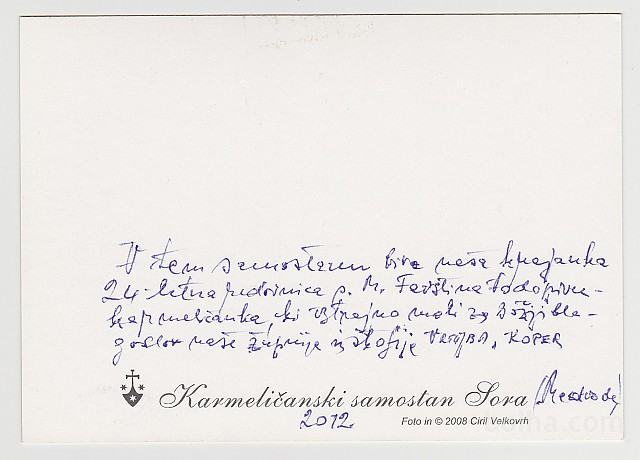 V tem samostanu biva naša krajanka
24-letna redovnica s. M. Favština Vodopivec-
karmeličanka, ki vztrajno moli za Božji bla-
goslov naše župnije in škofije VRTOJBA, KOPER
Karmeličanski samostan Sora (Medvode)
2012
Foto in © 2008 Ciril Velkovrh
bolha.com